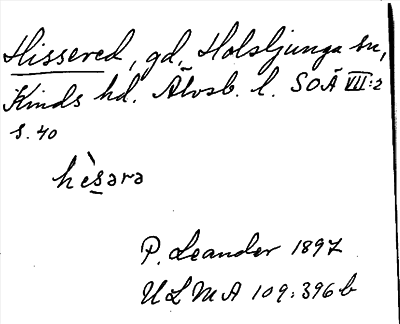 Hissered, gd, Holsljunga sn,
Kinds hd. Älvsb. l. SOÄ VII:2
s. 40
hèsərə
P. Leander 1897
ULMA 109:396b